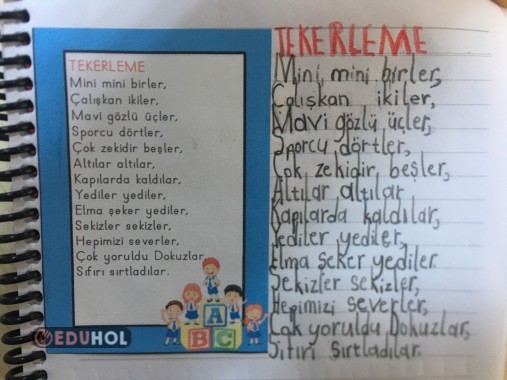 TEKERLEME
Mini mini birler,
Çalışkan ikiler,
Mavi gözlü üçler,
Sporcu dörtler,
Çok zekidir beşler,
Altılar altılar,
Kapılarda kaldılar,
Yediler yediler,
Elma şeker yediler,
Sekizler sekizler,
Hepimizi severler,
Çok yoruldu Dokuzlar,
Sıfırı sırtladılar.
A
B C
EDUHOL
TEKERLEME
Mini, mini birler,
Çalışkan ikiler,
Mavi gözlü üçler,
Sporcu dörtler,
Çok zekidir, beşler,
Altılar altılar
Kapılarda kaldılar,
Yediler yediler,
Elma şeker yediler.
Sekizler sekizler,
Hepimizi severler,
Çok yoruldu Dokuzlar,
Sıfırı Sırtladılar.